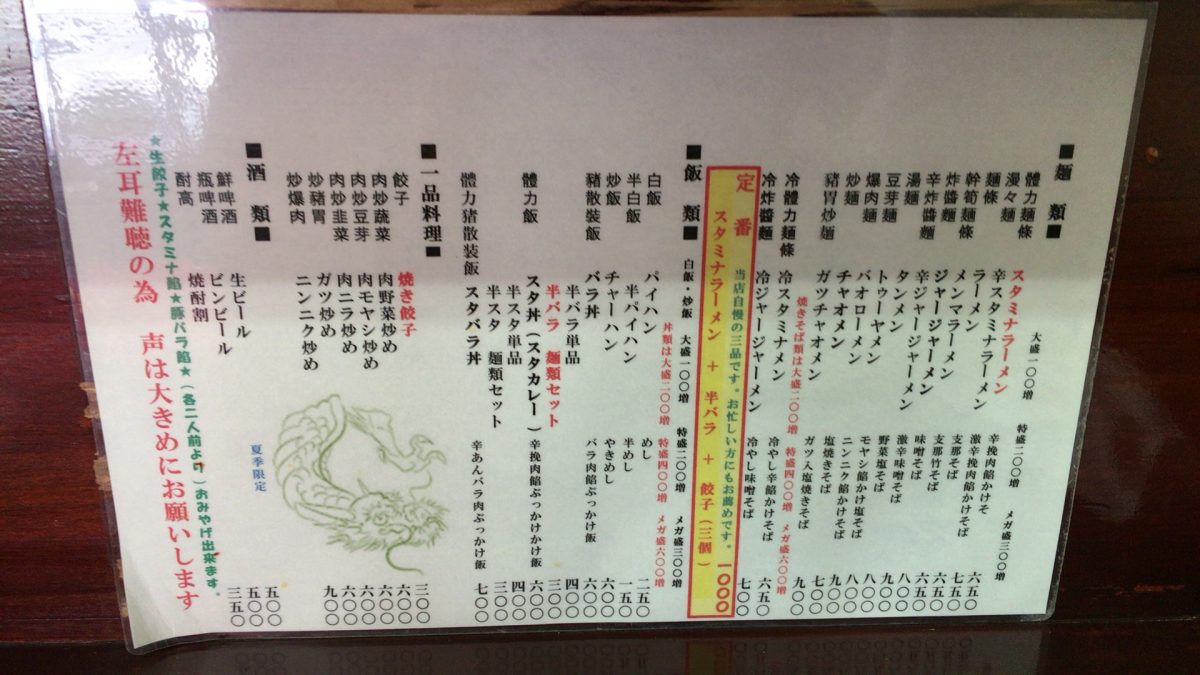 ■麺類■ 大盛一〇〇増 特盛二〇〇増 メガ盛三〇〇増
體力麺條 スタミナラーメン 辛挽肉餡かけそ 六五〇
漫々麺 辛スタミナラーメン 激辛挽肉餡かけそば 七五〇
麺條 ラーメン 支那そば
幹筍麺條 メンマラーメン 支那竹そば
炸醬麺 ジャージャーメン 味噌そば
辛炸醬麺 辛ジャージャーメン 激辛味噌そば
湯麺 タンメン 野菜塩そば
豆芽麺 トゥーヤメン モヤシ餡かけ塩そば 八〇〇
爆肉麺 バオローメン ニンニク餡かけそば 九〇〇
炒麺 チャオメン 塩焼きそば 七〇〇
豬胃炒麺 ガツチャオメン ガツ入塩焼きそば 九〇〇
焼きそば類は大盛二〇〇増 特盛四〇〇増 メガ盛六〇〇増
冷體力麺條 冷スタミナメン 冷やし辛餡かけそば 六五〇
冷炸醬麺 冷ジャージャーメン 冷やし味噌そば 七〇〇
定番 当店自慢の三品です。お忙しい方にもお薦めです。
スタミナラーメン + 半バラ + 餃子(三個) 一〇〇〇
■飯類■ 白飯・炒飯 大盛一〇〇増 特盛二〇〇増 メガ盛三〇〇増
丼類は大盛二〇〇増 特盛四〇〇増 メガ盛六〇〇増
白飯 パイハン めし 二五〇
半白飯 半パイハン 半めし 一五〇
炒飯 チャーハン やきめし 六〇〇
豬散裝飯 バラ丼 バラ肉餡ぶっかけ飯 六〇〇
半バラ単品 四〇〇
半バラ 麺類セット 三〇〇
體力飯 スタ丼(スタカレー) 辛挽肉餡ぶっかけ飯 六〇〇
半スタ単品 四〇〇
半スタ 麺類セット 三〇〇
體力猪散装飯 スタバラ丼 辛あんバラ肉ぶっかけ飯 七〇〇
■一品料理■
餃子 焼き餃子 三〇〇
肉炒蔬菜 肉野菜炒め 六〇〇
肉炒豆芽 肉モヤシ炒め 六〇〇
肉炒韭菜 肉ニラ炒め 六〇〇
炒豬胃 ガツ炒め 六〇〇
炒爆肉 ニンニク炒め 九〇〇
■酒類■ 夏季限定
鮮啤酒 生ビール 五〇〇
瓶啤酒 ビンビール 五〇〇
酎高 焼酎割 三五〇
★生餃子★スタミナ餡★豚バラ餡★(各二人前より)おみやげ出来ます。
左耳難聴の為 声は大きめにお願いします